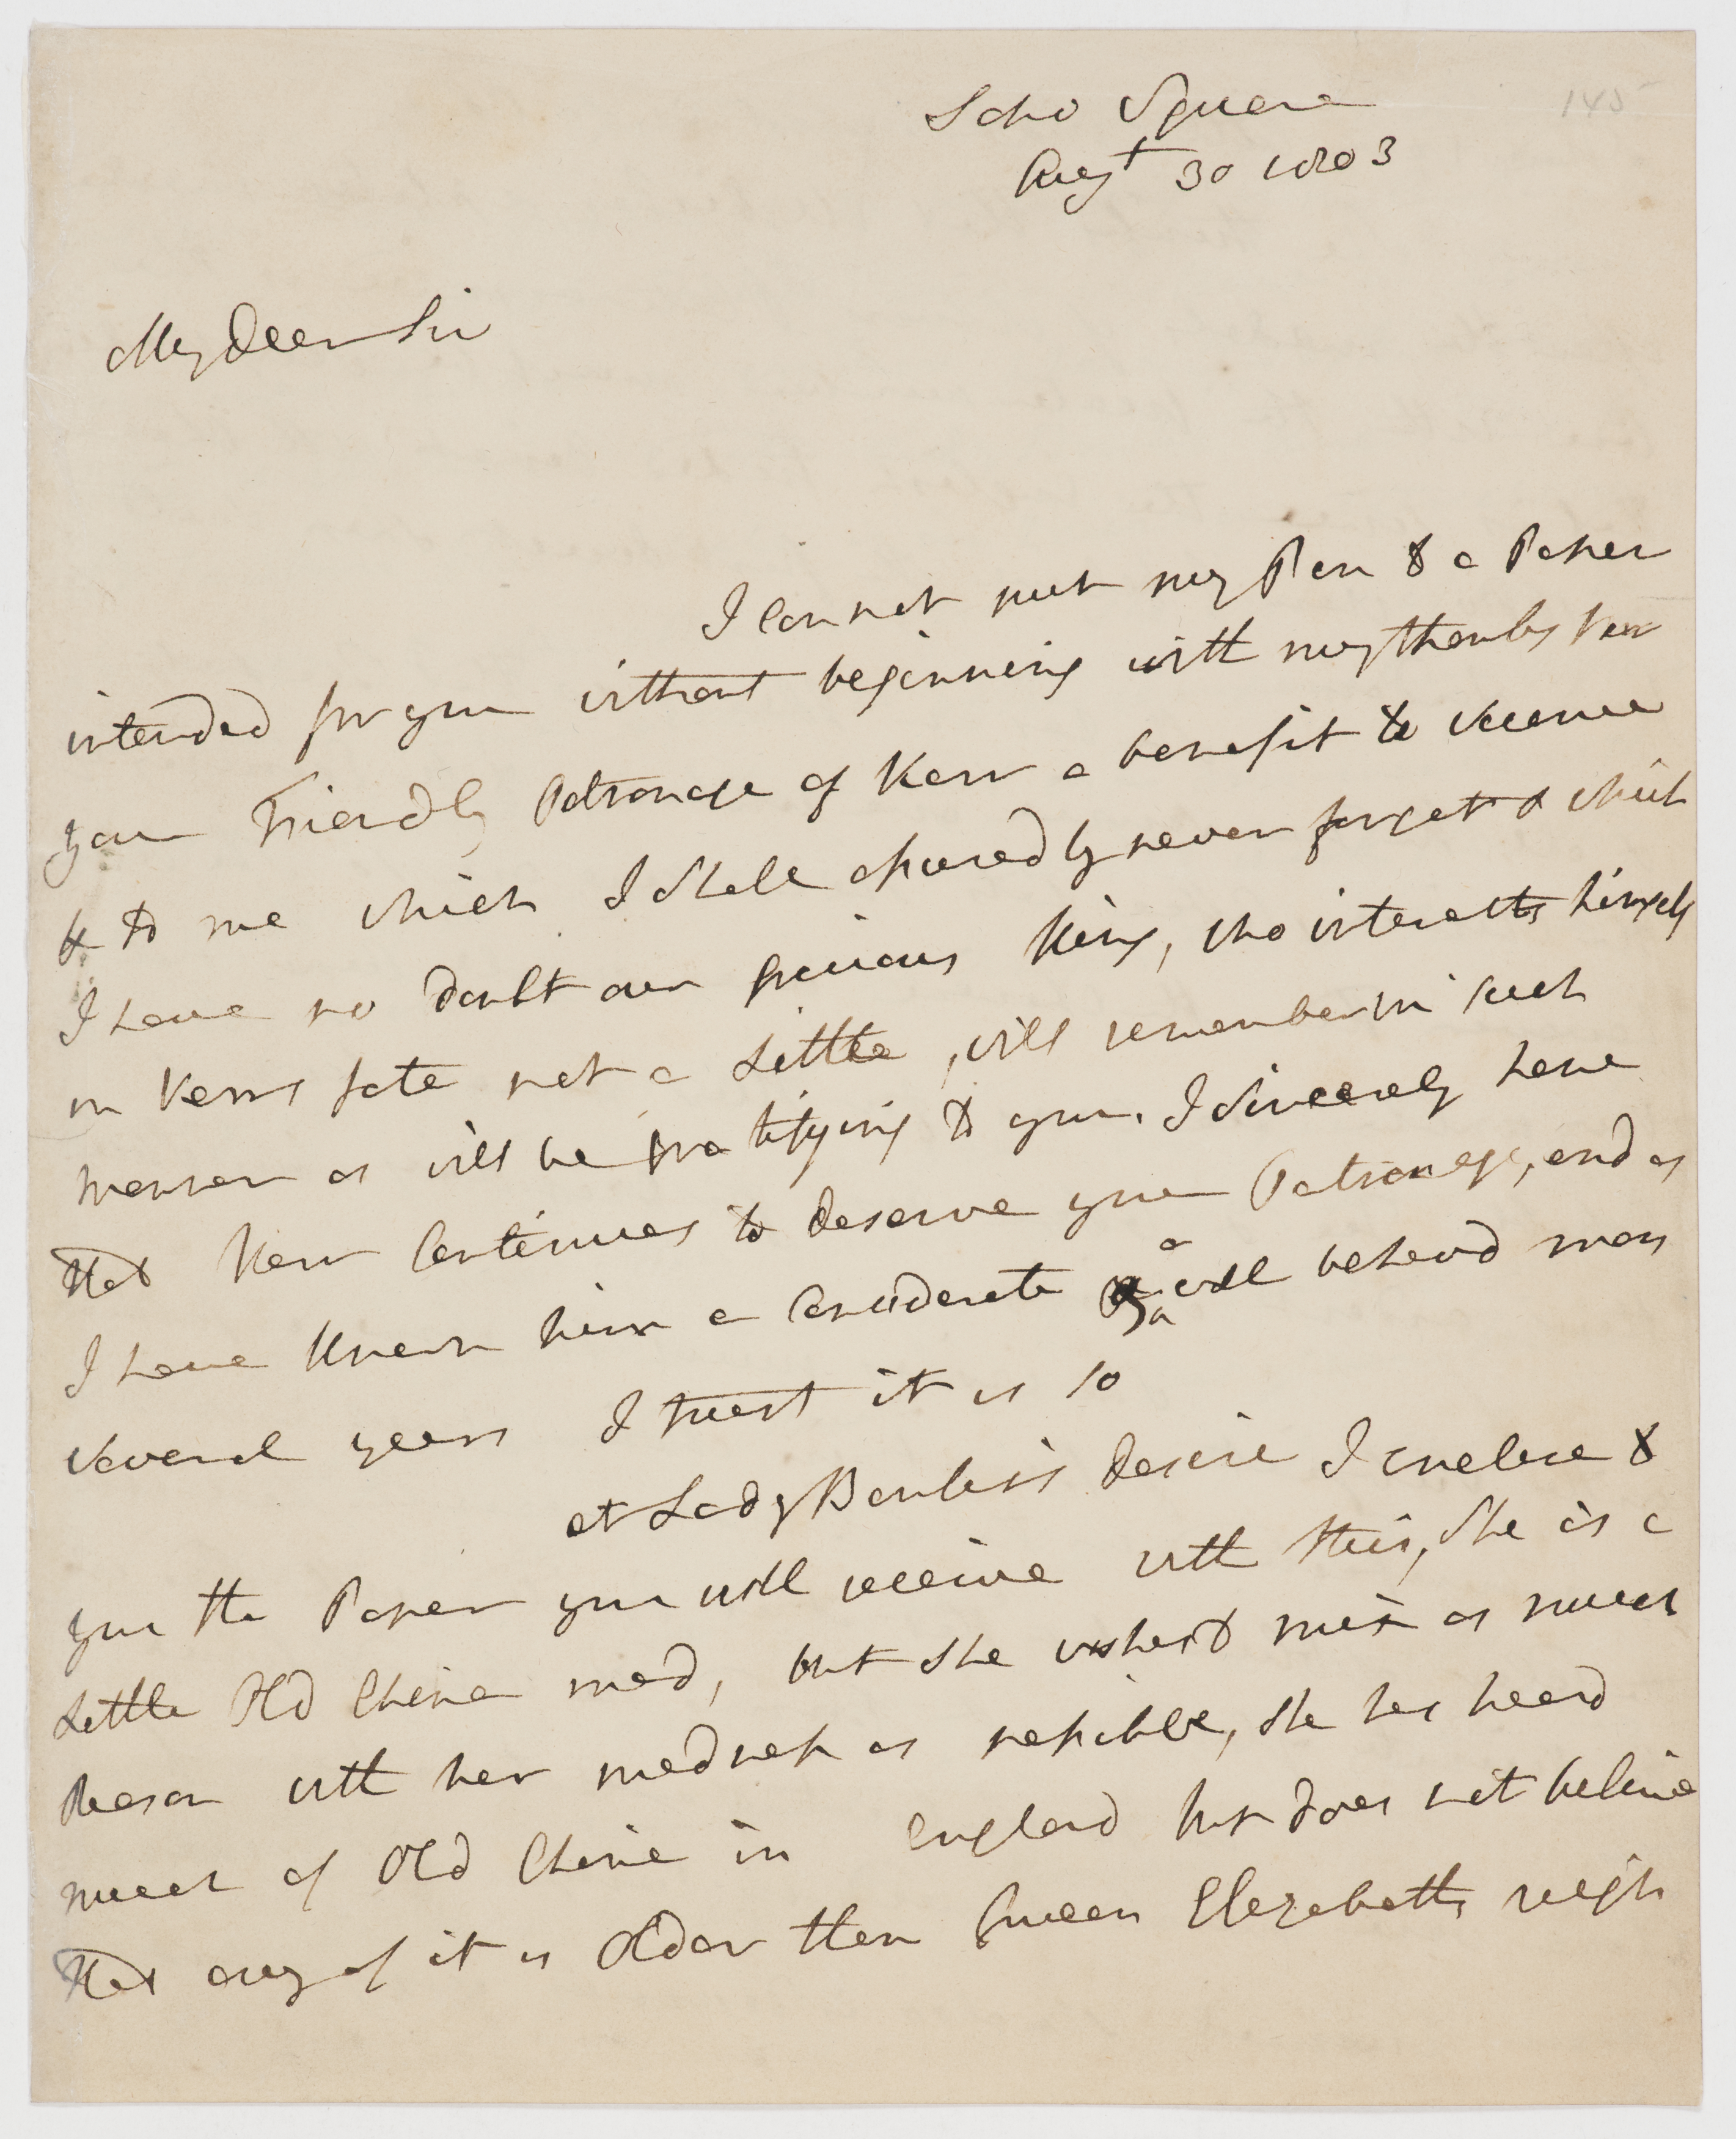 145
Soho Square
Augt 30 1803
My Dear Sir
I Can not put my Pen to a Paper
intended for you without beginning with my thanks for
your Friendly Patronage of Kerr a benefit to Science
& to me which I Shall assuredly never forget & which
I have no doubt our Gracious King, who interests himself
in Kerrs fate not a Little, will remember in such
manner as will be gratifying to you. I Sincerely hope
that Kerr Continues to deserve your Patronage, and as
I have Known him a Considerate & a well behavd man
several years I trust it is so
at Lady Banks's desire I inclose to
you the Paper you will receive with this, She is a
Little Old China mad, but she wishes to mix as much
Reason with her madness as possible, She has heard
much of Old China in England but does not believe
that any of it is Older than Queen Elizabeths reign